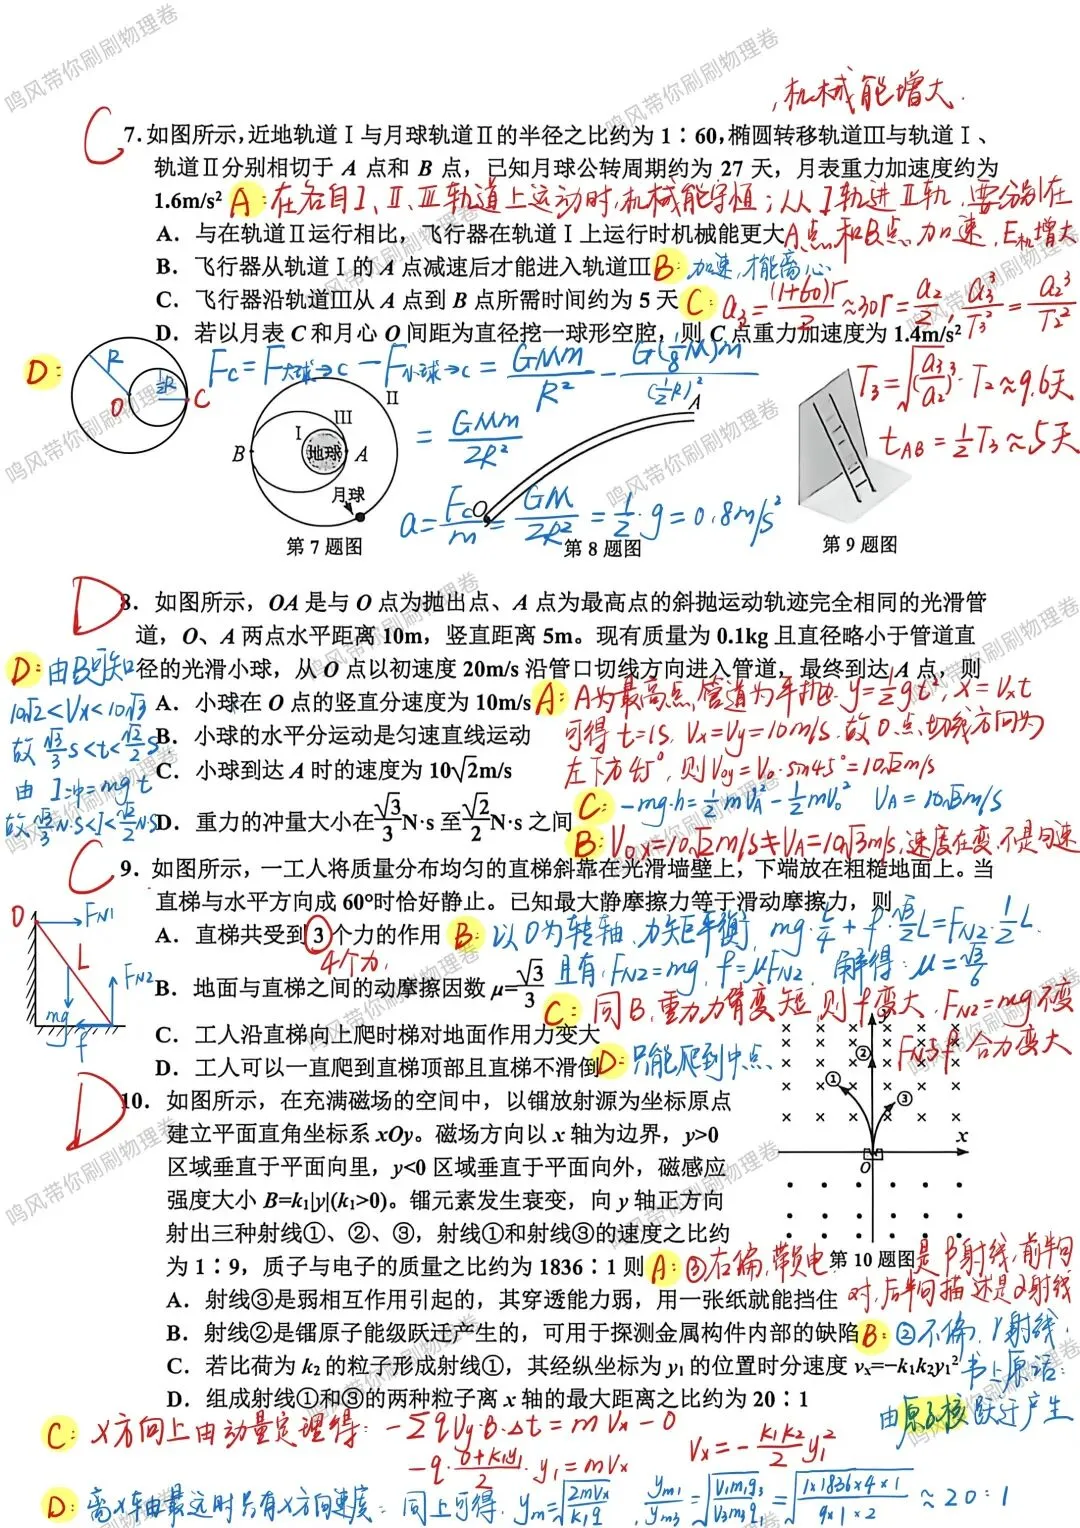 鸣风带你刷刷物理卷
机械能增大.
C
7.如图所示,近地轨道Ⅰ与月球轨道Ⅱ的半径之比约为 1∶60,椭圆转移轨道Ⅲ与轨道Ⅰ、
轨道Ⅱ分别相切于 A 点和 B 点，已知月球公转周期约为 27 天，月表重力加速度约为
1.6m/s² A:在各自Ⅰ、Ⅱ、Ⅲ轨道上运动时,机械能守恒;从Ⅰ轨进Ⅱ轨,要分别在
A．与在轨道Ⅱ运行相比，飞行器在轨道Ⅰ上运行时机械能更大 A点和B点加速,E机增大
B．飞行器从轨道Ⅰ的 A 点减速后才能进入轨道Ⅲ B:加速,才能离心
C．飞行器沿轨道Ⅲ从 A 点到 B 点所需时间约为 5 天 C: a₃=(1+60)r/2≈30r=a₂/2, a₃³/T₃²=a₂³/T₂²
D．若以月表 C 和月心 O 间距为直径挖一球形空腔，则 C 点重力加速度为 1.4m/s²
D: R O ½R C
Fc=F大球→c－F小球→c=GMm/R²－G(⅛M)m/(½R)²
=GMm/2R²
a=Fc/m=GM/2R²=½·g=0.8m/s²
T₃=√(a₃/a₂)³·T₂≈9.6天
tAB=½T₃≈5天
Ⅱ
Ⅲ
Ⅰ
B 地球 A
月球
第 7 题图
A
O
第 8 题图
第 9 题图
D
8．如图所示，OA 是与 O 点为抛出点、A 点为最高点的斜抛运动轨迹完全相同的光滑管
道，O、A 两点水平距离 10m，竖直距离 5m。现有质量为 0.1kg 且直径略小于管道直
径的光滑小球，从 O 点以初速度 20m/s 沿管口切线方向进入管道，最终到达 A 点，则
A．小球在 O 点的竖直分速度为 10m/s A:A为最高点,管道为平抛. y=½gt², x=Vxt
可得 t=1s, Vx=Vy=10m/s.故O点切线方向为
B．小球的水平分运动是匀速直线运动
左下方45°,则V₀y=V₀·sin45°=10√2m/s
C．小球到达 A 时的速度为 10√2m/s
C:-mg·h=½mVA²-½mV₀² VA=10√3m/s
D．重力的冲量大小在√3/3N·s 至√2/2N·s 之间
B:V₀x=10√2m/s≠VA=10√3m/s,速度在变,不是匀速
D:由B可知
10√2<Vx<10√3
故 √3/3s<t<√2/2s
由 I冲=mgt
故√3/3N·s<I<√2/2N·s
C
9．如图所示，一工人将质量分布均匀的直梯斜靠在光滑墙壁上，下端放在粗糙地面上。当
直梯与水平方向成 60°时恰好静止。已知最大静摩擦力等于滑动摩擦力，则
A．直梯共受到 3 个力的作用 B:以O为转轴,力矩平衡, mg·L/4+f·√3/2L=FN2·½L
4个力,
B．地面与直梯之间的动摩擦因数 μ=√3/3
且有:FN2=mg, f=μFN2, 解得:μ=√3/6
C:同B,重力力臂变短,则f变大,FN2=mg不变
C．工人沿直梯向上爬时梯对地面作用力变大
FN与f合力变大
D．工人可以一直爬到直梯顶部且直梯不滑倒 D:只能爬到中点
O FN1
L
FN2
mg
f
D
10．如图所示，在充满磁场的空间中，以镏放射源为坐标原点
建立平面直角坐标系 xOy。磁场方向以 x 轴为边界，y>0
区域垂直于平面向里，y<0 区域垂直于平面向外，磁感应
强度大小 B=k₁|y|(k₁>0)。镏元素发生衰变，向 y 轴正方向
射出三种射线①、②、③，射线①和射线③的速度之比约
为 1∶9，质子与电子的质量之比约为 1836∶1 则 A:③右偏,带负电,是β射线,前半句
y
②
①
③
x
O
第 10 题图
A．射线③是弱相互作用引起的，其穿透能力弱，用一张纸就能挡住 对,后半句描述是α射线
B．射线②是镏原子能级跃迁产生的，可用于探测金属构件内部的缺陷 B:②不偏,γ射线,
C．若比荷为 k₂ 的粒子形成射线①，其经纵坐标为 y₁ 的位置时分速度 vₓ=−k₁k₂y₁² 书上原话:
D．组成射线①和③的两种粒子离 x 轴的最大距离之比约为 20∶1
由原子核跃迁产生
C: x方向上由动量定理得: -∑qVy·B·Δt=mVx-0
-q·(0+k₁y₁)/2·y₁=mVx Vx=-k₁k₂/2 y₁²
D:离x轴最远时只有x方向速度:同上可得, ym=√2mVx/k₁q, ym1/ym3=√V₁m₁q₃/V₃m₃q₁=√1×1836×4×1/9×1×2≈20:1